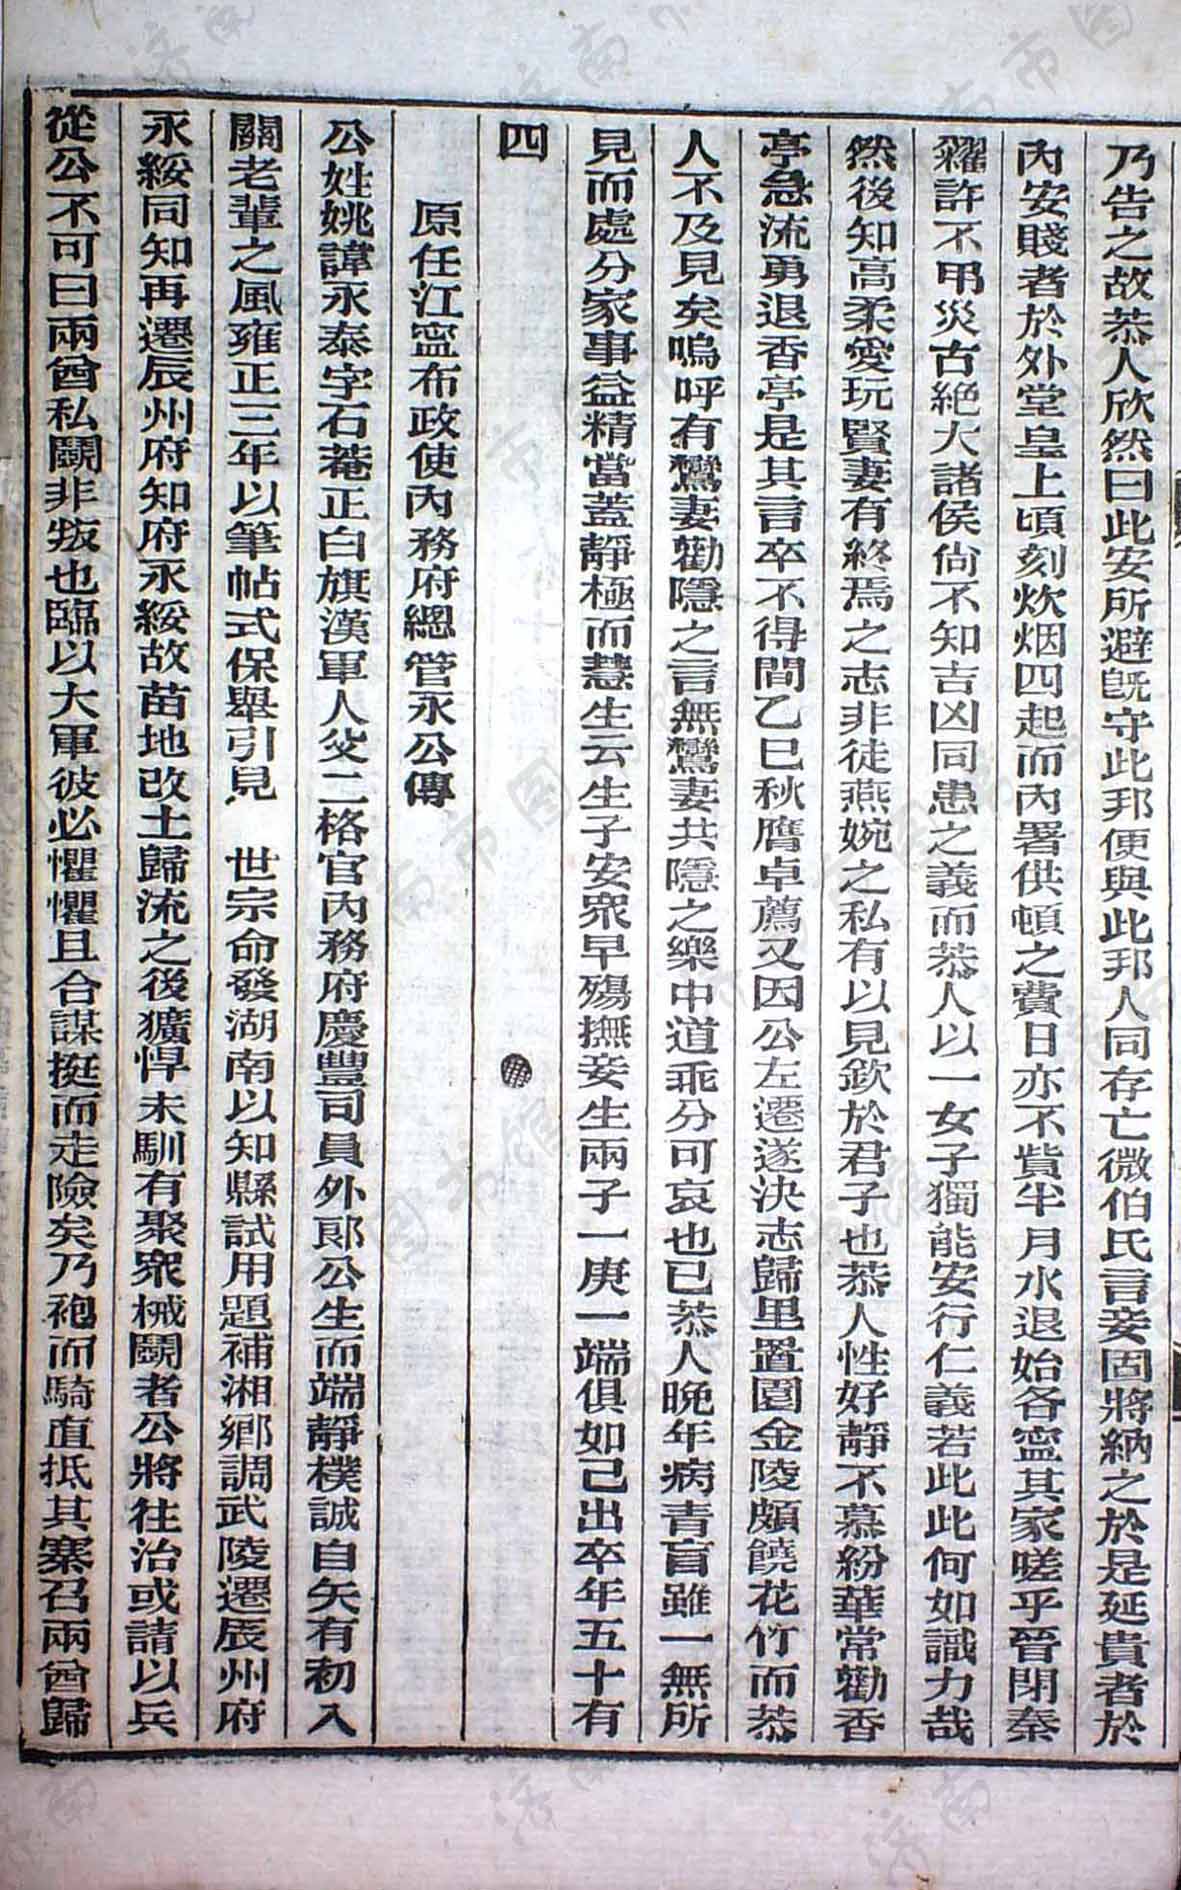 乃告之故恭人欣然曰此安所避旣守此邦便與此邦人同存亡微伯氏言妾固將納之於是延貴者於
內安賤者於外堂皇上頃刻炊烟四起而內署供頓之費日亦不貲半月水退始各寍其家嗟乎晉閉秦
糴許不弔災古絕大諸侯尙不知吉凶同患之義而恭人以一女子獨能安行仁義若此此何如識力哉
然後知高柔愛玩賢妻有終焉之志非徒燕婉之私有以見欽於君子也恭人性好靜不慕紛華常勸香
亭急流勇退香亭是其言卒不得間乙巳秋膺卓薦又因公左遷遂決志歸里置園金陵頗饒花竹而恭
人不及見矣嗚呼有鸞妻勸隱之言無鸞妻共隱之樂中道乖分可哀也已恭人晚年病青盲雖一無所
見而處分家事益精當蓋靜極而慧生云生子安眾早殤撫妾生兩子一庚一端俱如己出卒年五十有
四
原任江寍布政使內務府總管永公傳
公姓姚諱永泰字石菴正白旗漢軍人父二格官內務府慶豐司員外郞公生而端靜樸誠白矢有初入
關老輩之風雍正三年以筆帖式保舉引見 世宗命發湖南以知縣試用題補湘鄕調武陵遷辰州府
永綏同知再遷辰州府知府永綏故苗地改土歸流之後獷悍未馴有聚眾械鬭者公將往治或請以兵
從公不可曰兩酋私鬭非叛也臨以大軍彼必懼懼且合謀挺而走險矣乃袍而騎直抵其寨召兩酋歸